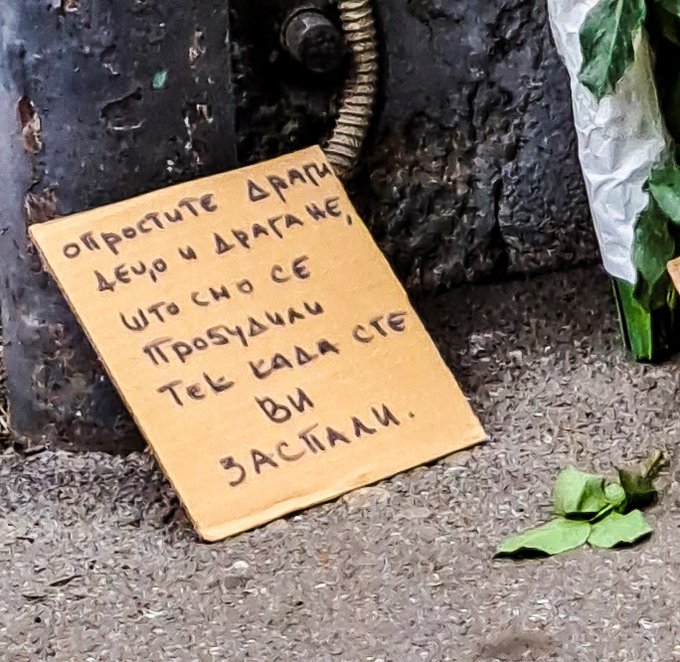 ОПРОСТИТЕ ДРАГИ
ДЕЦО И ДРАГАНЕ,
ШТО СМО СЕ
ПРОБУДИЛИ
ТЕК КАДА СТЕ
ВИ
ЗАСПАЛИ.